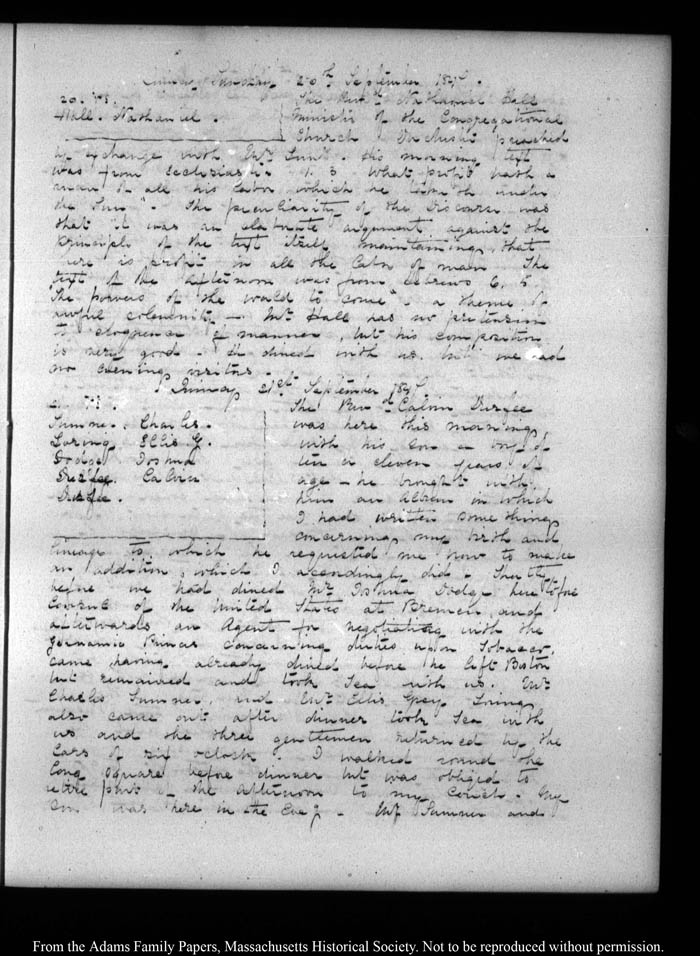 Quincy Sunday 20th September 1846.
20. VI. The Revd. Nathaniel Hall
Hall. Nathaniel. Minister of the Congregational
Church Dorchester preached
by exchange with Mr Lunt. His morning text
was from Ecclesiastes 1. 3. What profit hath a
man of all his labor which he taketh under
the Sun". The peculiarity of the Discourse was
that it was an elaborate argument against the
principle of the text itself maintaining that
there is profit in all the labor of man. The
text of the afternoon was from Hebrews 6. 5
The powers of the world to come". a theme of
awful solemnity — Mr Hall has no pretension
to eloquence of manner, but his composition
is very good. He dined with us. we had
no evening visitors.
Quincy 21st September 1846
21. VI. The Revd. Calvin Durfee
Sumner. Charles. was here this morning,
Loring Ellis G. with his son a boy of
Dodge Joshua ten or eleven years of
Durfee. Calvin age — he brought with
Durfee. him an Album in which
I had written some things
concerning my birth and
lineage to which he requested me now to make
an addition, which I accordingly did. Shortly
before we had dined Mr Joshua Dodge heretofore
Consul of the United States at Bremen and
afterwards an Agent for negotiating with the
Germanic Princes concerning duties upon Tobacco,
came, having already dined before he left Boston
but remained and took Tea with us. Mr
Charles Sumner, and Mr Ellis Grey Loring
also came out after dinner took Tea with
us and the three gentlemen returned by the
Cars of six o'clock. I walked round the
long square before dinner but was obliged to
retire part of the afternoon to my Couch. My
Son was here in the Eveg — Mr Sumner and
From the Adams Family Papers, Massachusetts Historical Society. Not to be reproduced without permission.